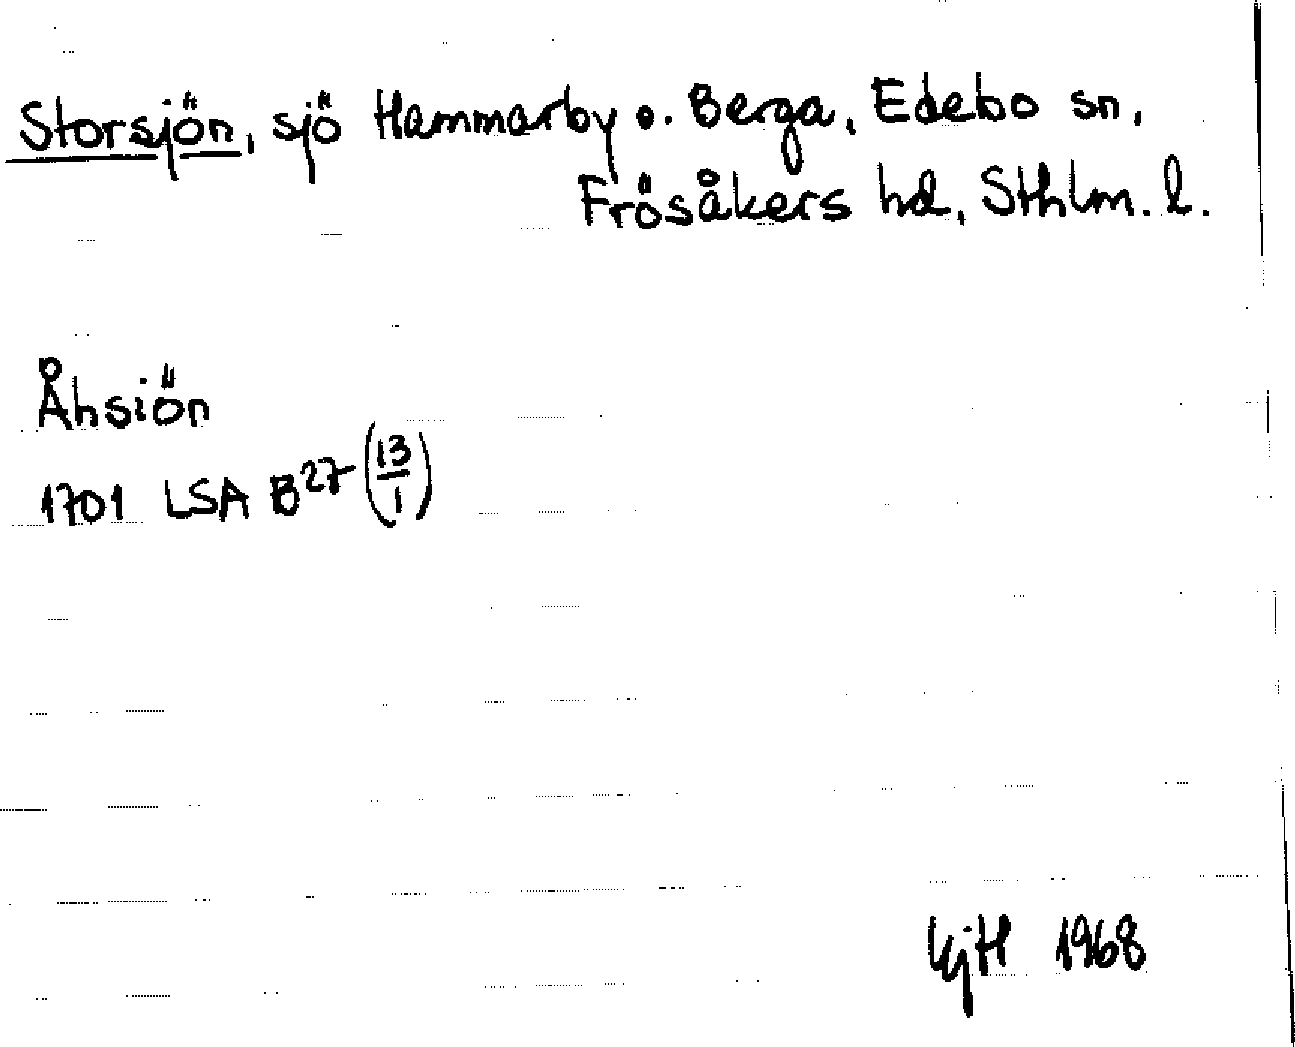 Storsjön, sjö Hammarby o. Berga, Edebo sn,
Frösåkers hd, Sthlm. l.
Åhsiön
1701 LSA B27 (13/1)
KjH 1968